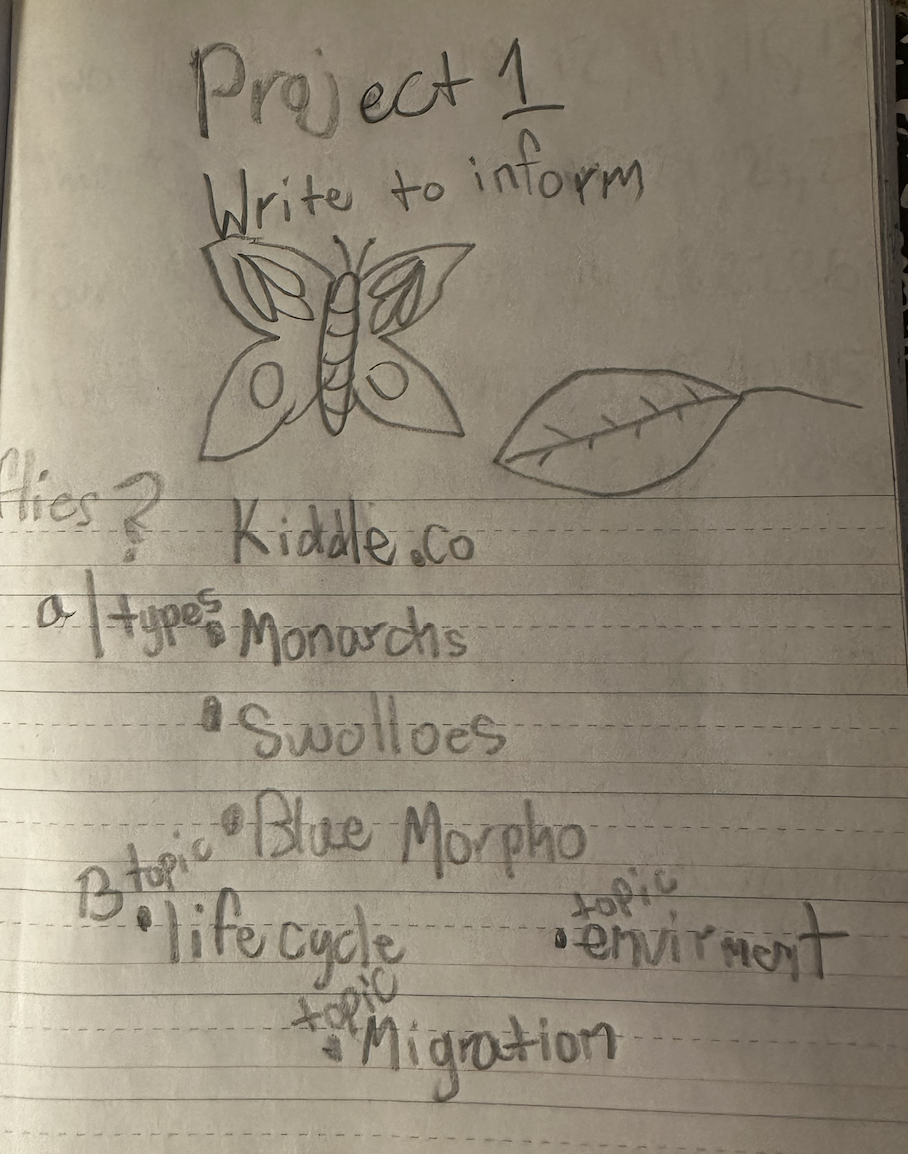 Project 1
Write to inform
flies? Kiddle.co
a| types • Monarchs
• Swolloes
• Blue Morpho
B topic
• life cycle
topic
• envirment
topic
• Migration